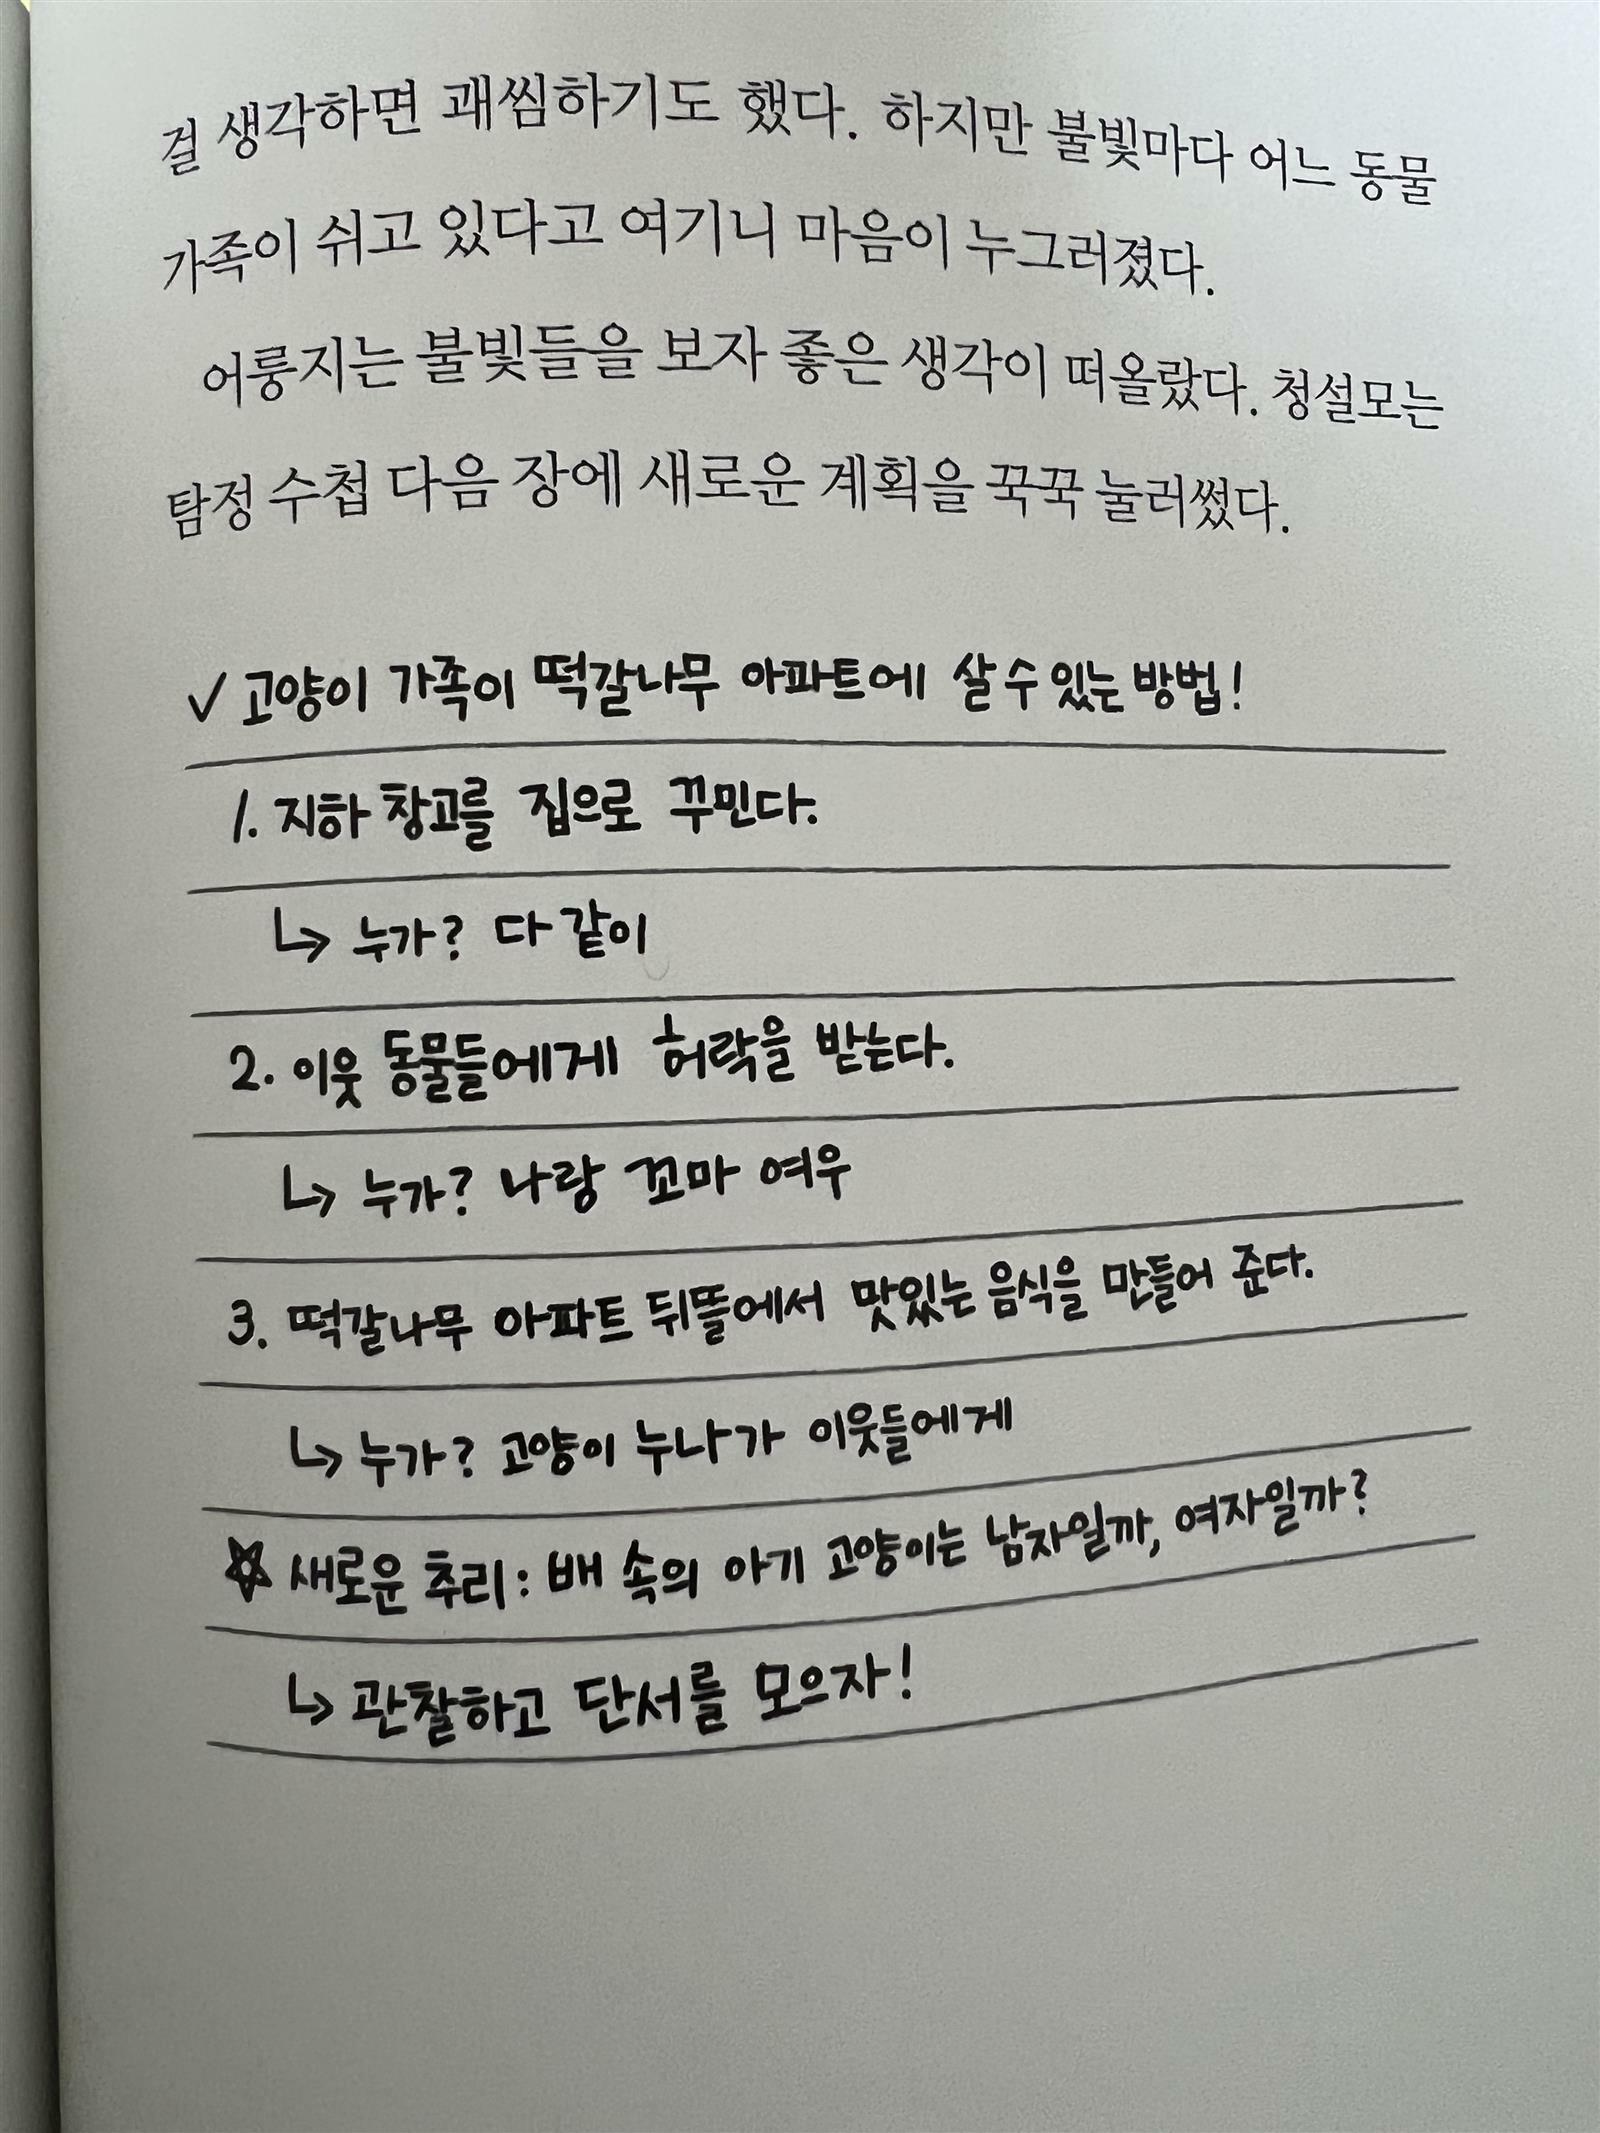 걸 생각하면 괘씸하기도 했다. 하지만 불빛마다 어느 동물
가족이 쉬고 있다고 여기니 마음이 누그러졌다.
어룽지는 불빛들을 보자 좋은 생각이 떠올랐다. 청설모는
탐정 수첩 다음 장에 새로운 계획을 꾹꾹 눌러썼다.
✓ 고양이 가족이 떡갈나무 아파트에 살 수 있는 방법!
1. 지하 창고를 집으로 꾸민다.
↳ 누가? 다 같이
2. 이웃 동물들에게 허락을 받는다.
↳ 누가? 나랑 꼬마 여우
3. 떡갈나무 아파트 뒤뜰에서 맛있는 음식을 만들어 준다.
↳ 누가? 고양이 누나가 이웃들에게
☆ 새로운 추리: 배 속의 아기 고양이는 남자일까, 여자일까?
↳ 관찰하고 단서를 모으자!